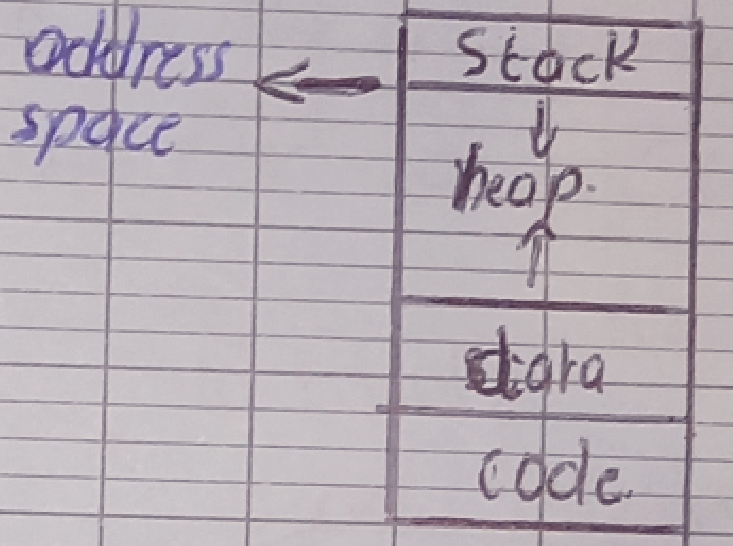 address
space
Stack
heap.
data
code.